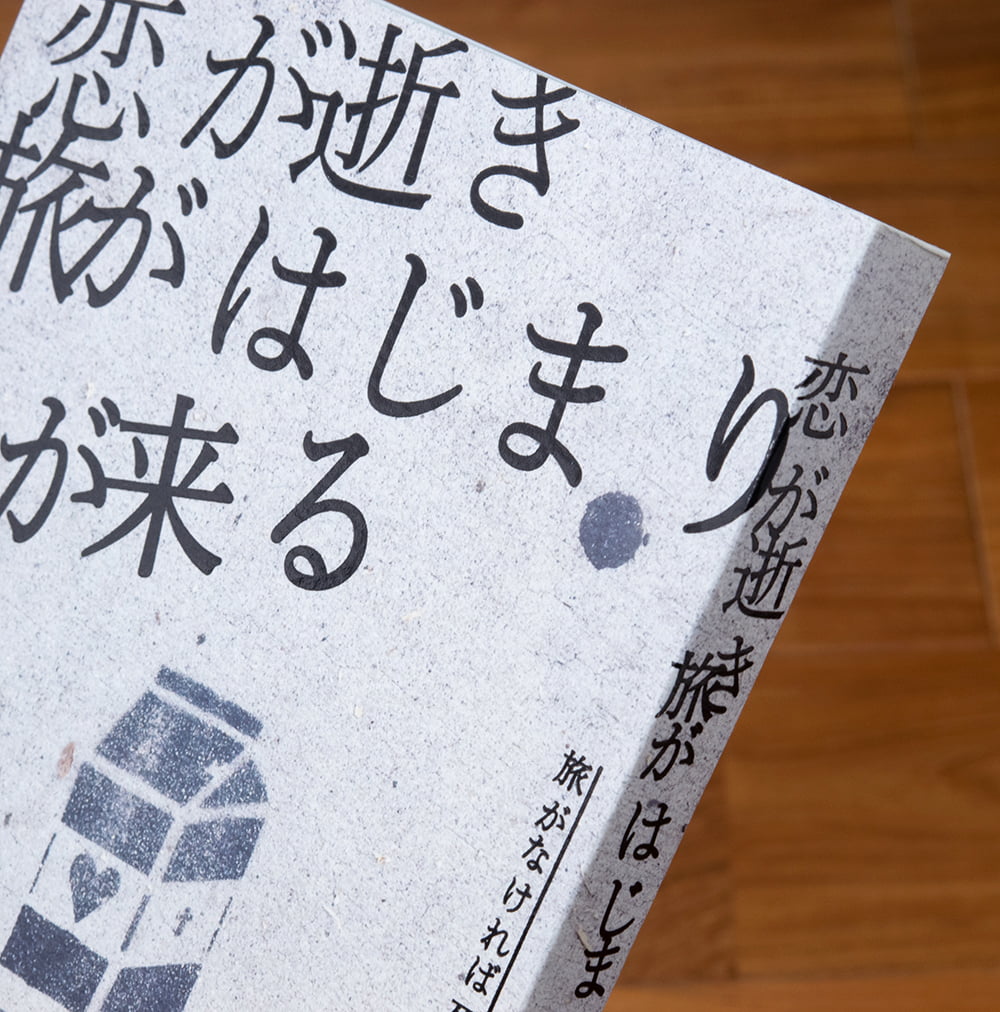 恋が逝き
旅がはじまり
が来る
旅がなければ
恋が逝き
旅がはじま